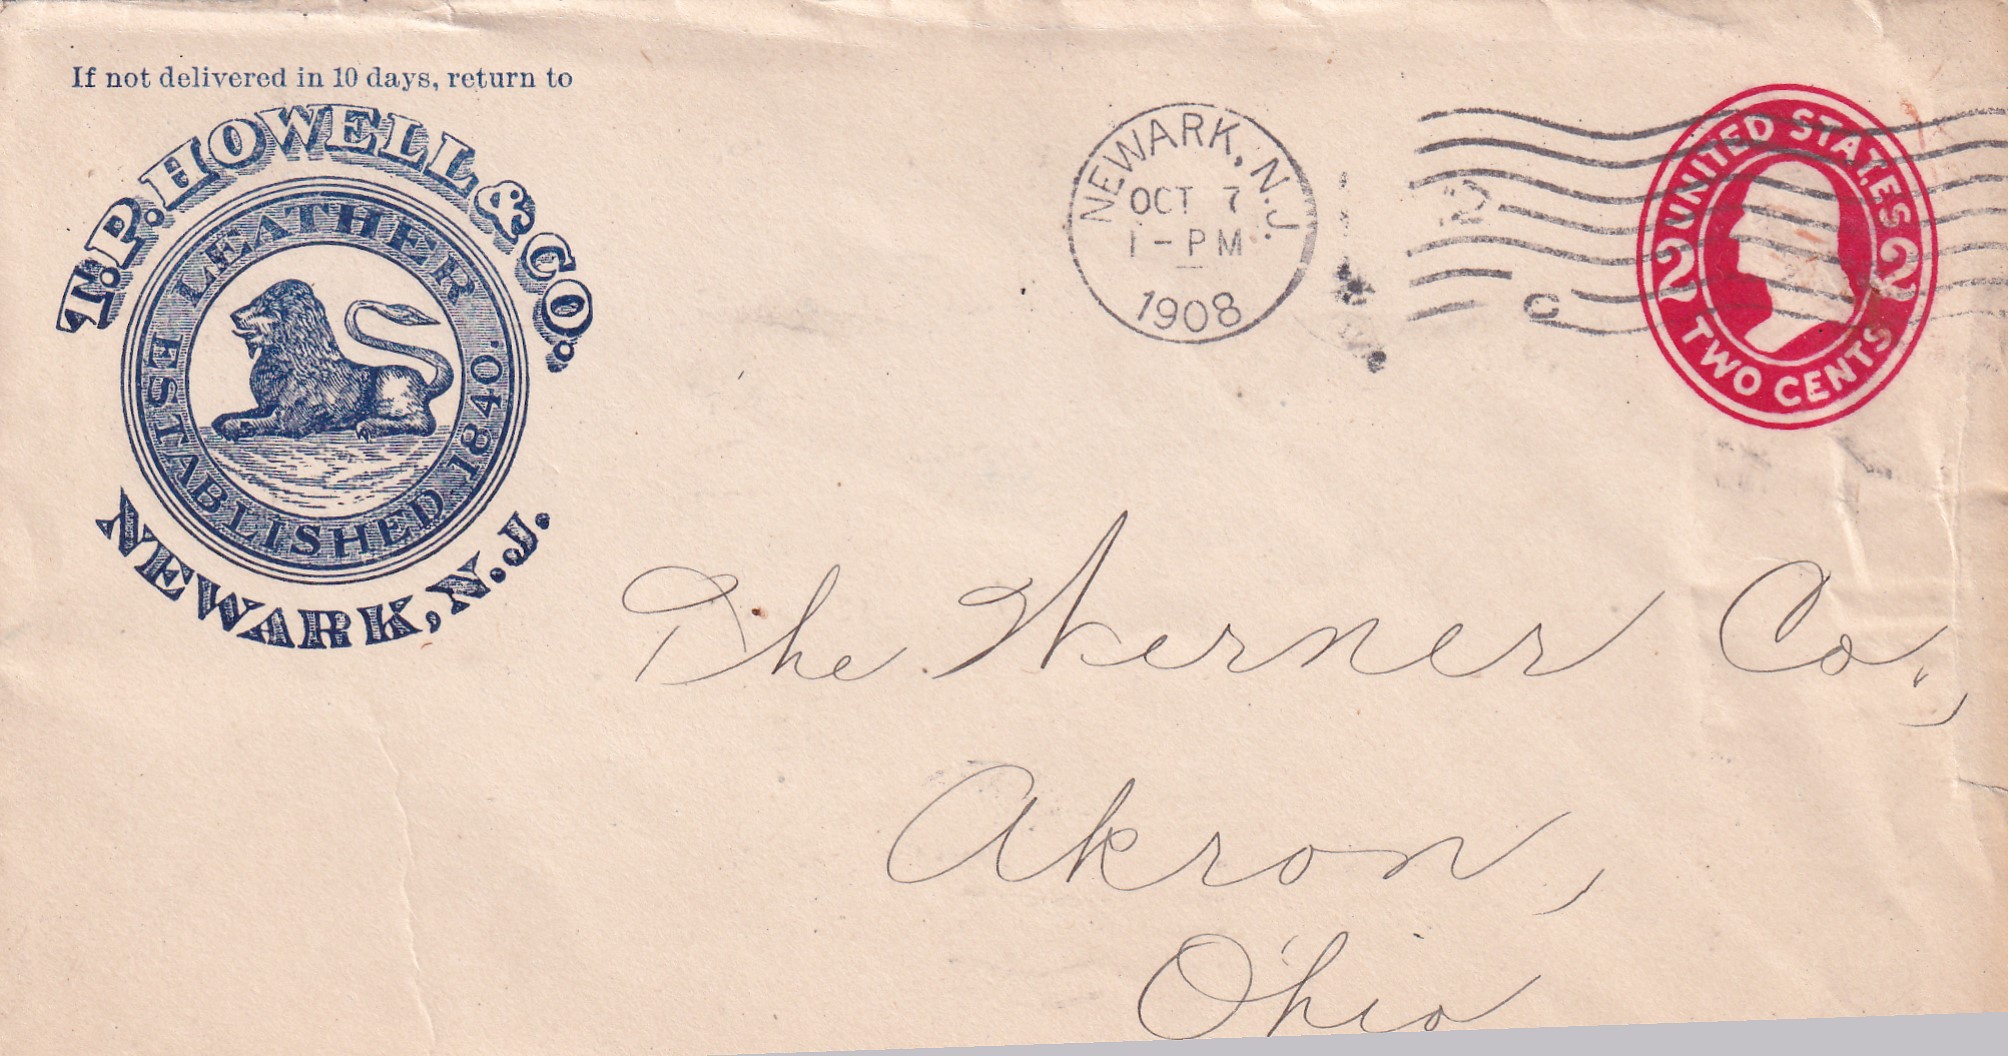 If not delivered in 10 days, return to
T.P. HOWELL & CO.
LEATHER.
ESTABLISHED 1840.
NEWARK, N.J.
NEWARK, N.J.
OCT 7
1 - PM
1908
UNITED STATES
2 2
TWO CENTS
The Werner Co.,
Akron,
Ohio